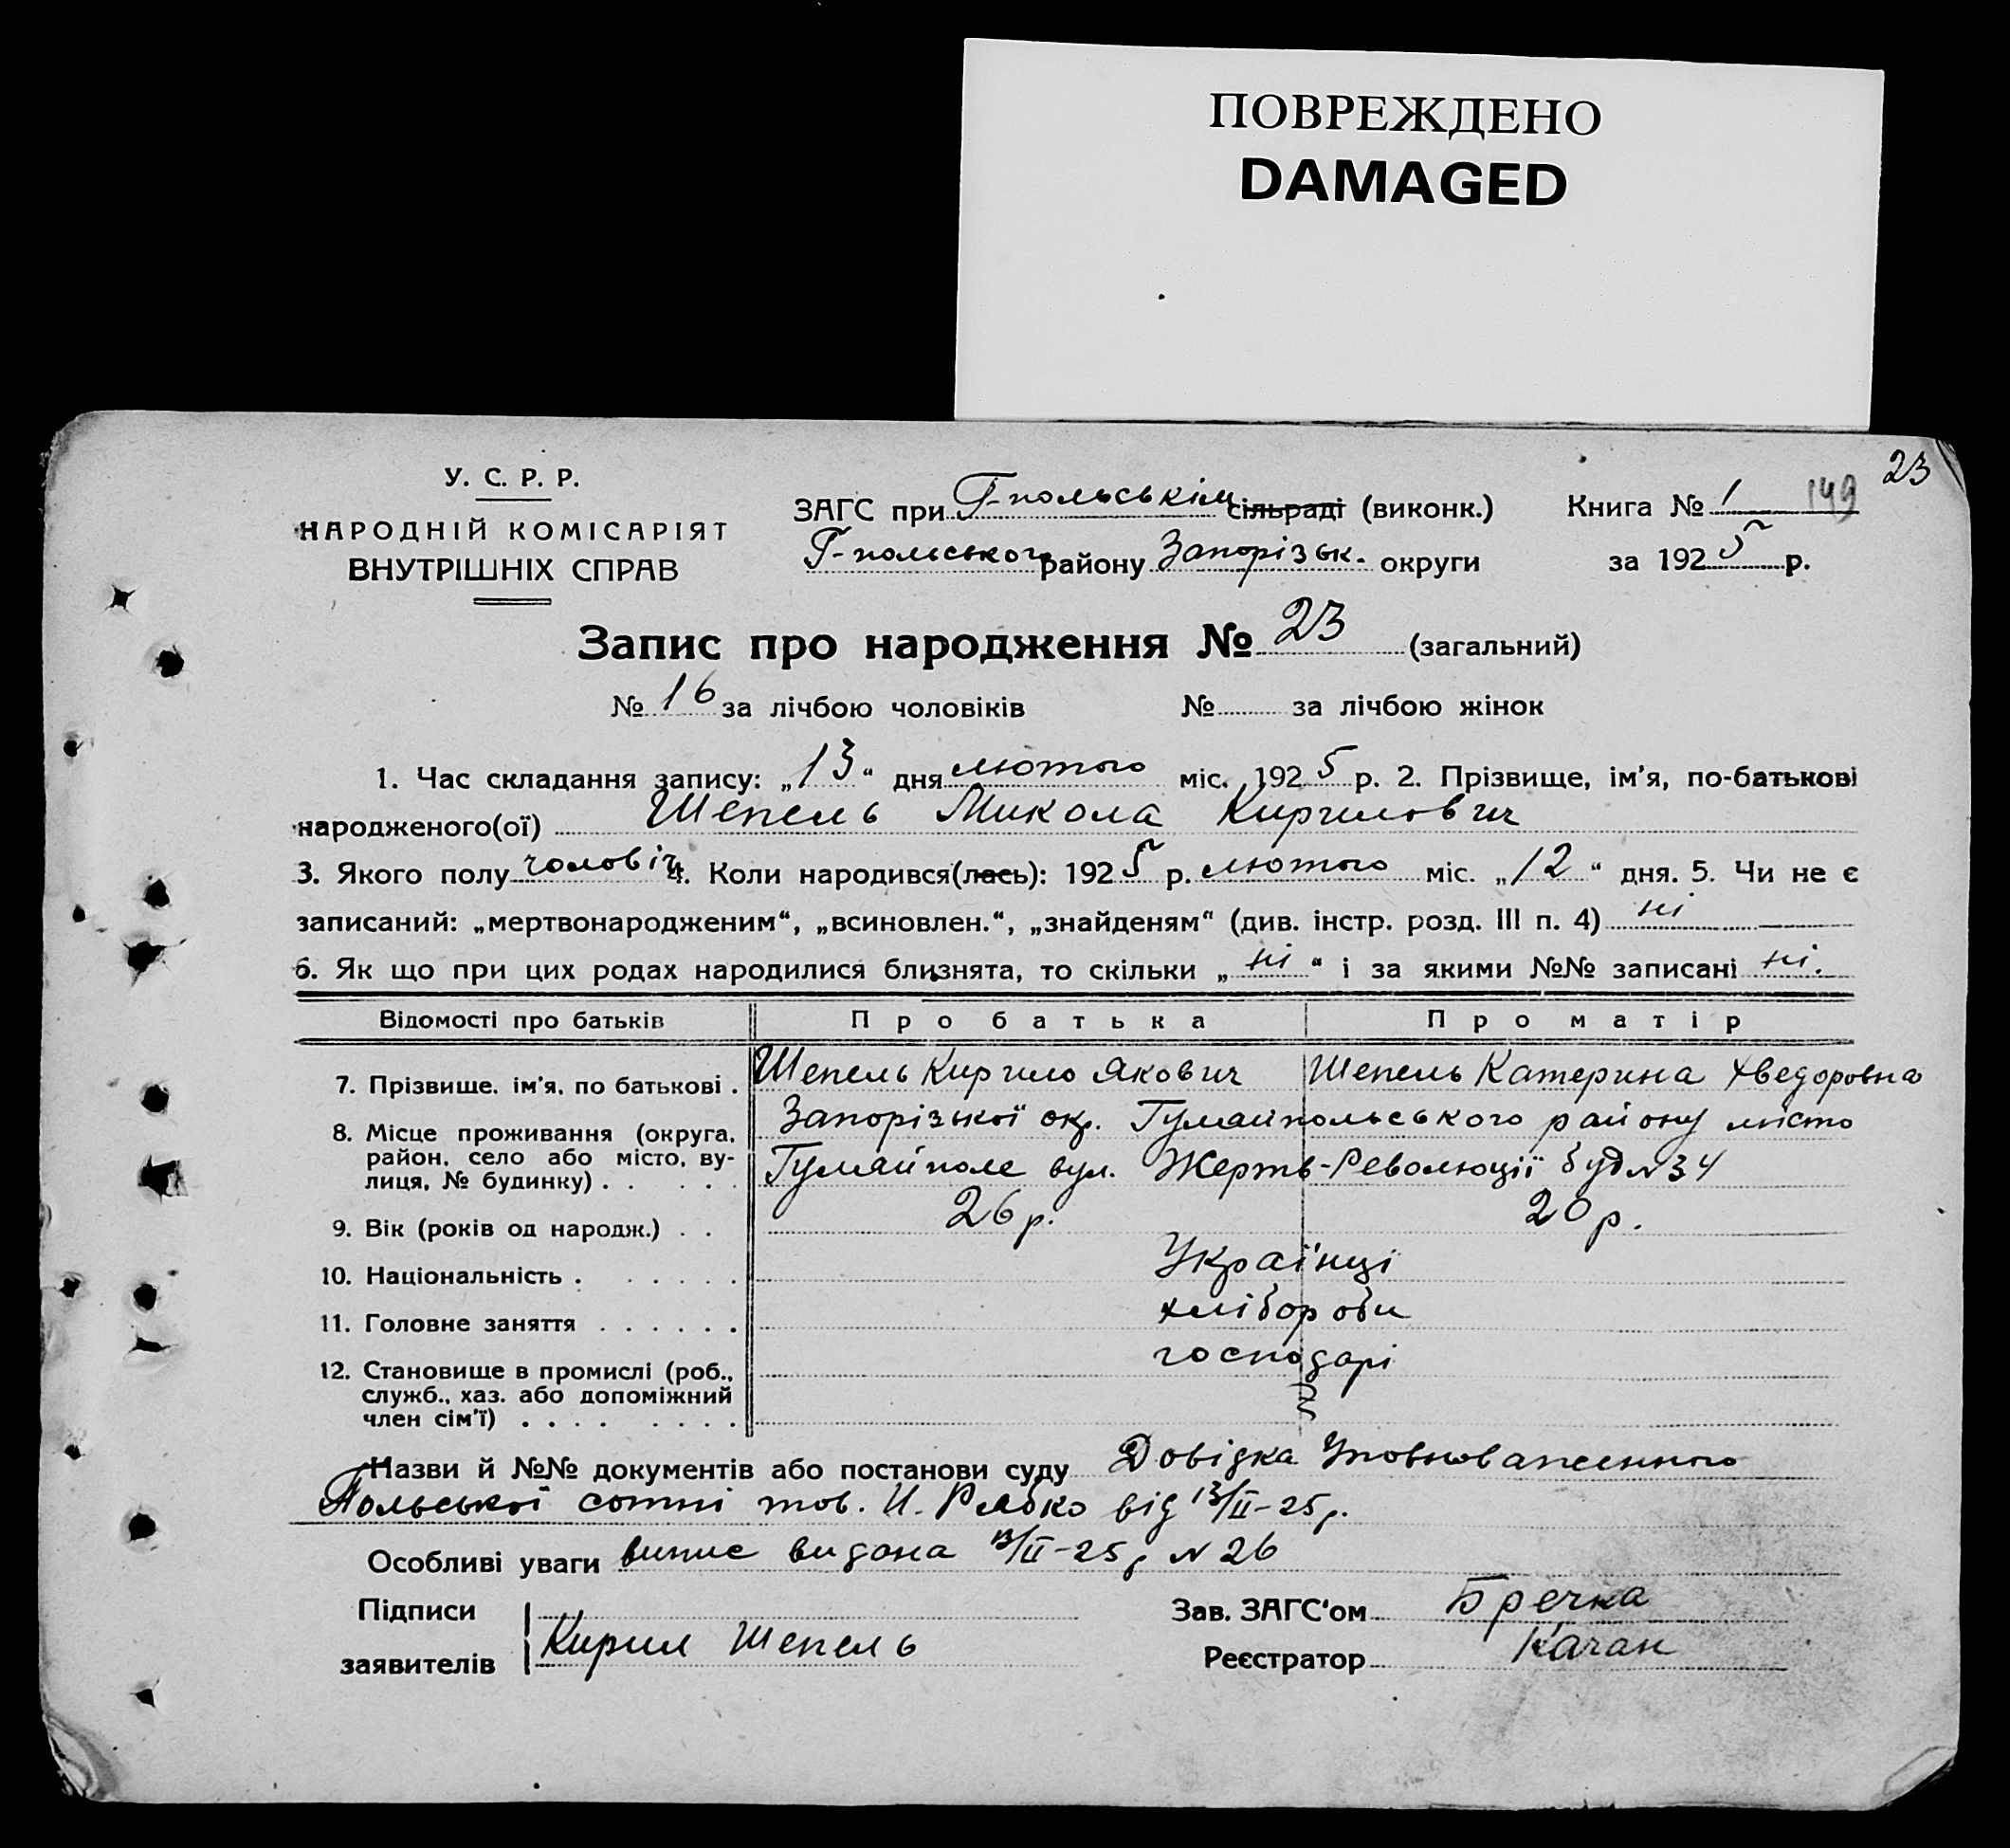 ПОВРЕЖДЕНО
DAMAGED
23
У. С. Р. Р.
НАРОДНІЙ КОМІСАРІЯТ
ВНУТРІШНІХ СПРАВ
ЗАГС при Г-польськім сільраді (виконк.) Книга № 1 149
Г-польського району Запорізьк. округи за 1925 р.
Запис про народження № 23 (загальний)
№ 16 за лічбою чоловіків № за лічбою жінок
1. Час складання запису: „13“ дня лютого міс. 1925 р. 2. Прізвище, ім'я, по-батькові
народженого(ої) Шепель Микола Кирилович
3. Якого полу чоловіч 4. Коли народився(лась): 1925 р. лютого міс. „12“ дня. 5. Чи не є
записаний: „мертвонародженим“, „всиновлен.“, „знайденям“ (див. інстр. розд. III п. 4) ні
6. Як що при цих родах народилися близнята, то скільки „ні“ і за якими №№ записані ні.
Відомості про батьків Про батька Про матір
7. Прізвище, ім'я, по батькові . Шепель Кирило Якович Шепель Катерина Хведоровна
8. Місце проживання (округа, Запорізької окр. Гуляйпольського району місто
район, село або місто, ву-
лиця, № будинку) . . . . . Гуляйполе вул. Жертв-Революції буд N 34
9. Вік (років од народж.) . . 26 р. 20 р.
10. Національність . . . . . . Українці
11. Головне заняття . . . . . . хлібороби
12. Становище в промислі (роб., господарі
служб., хаз. або допоміжний
член сім'ї) . . . . . . . .
Назви й №№ документів або постанови суду Довідка Уповноваженного
Польської сотні тов. И. Рябко від 13/II-25 р.
Особливі уваги випис видана 13/II-25 р N 26
Підписи Зав. ЗАГС'ом Бречка
заявителів Кирил Шепель Реєстратор Качан